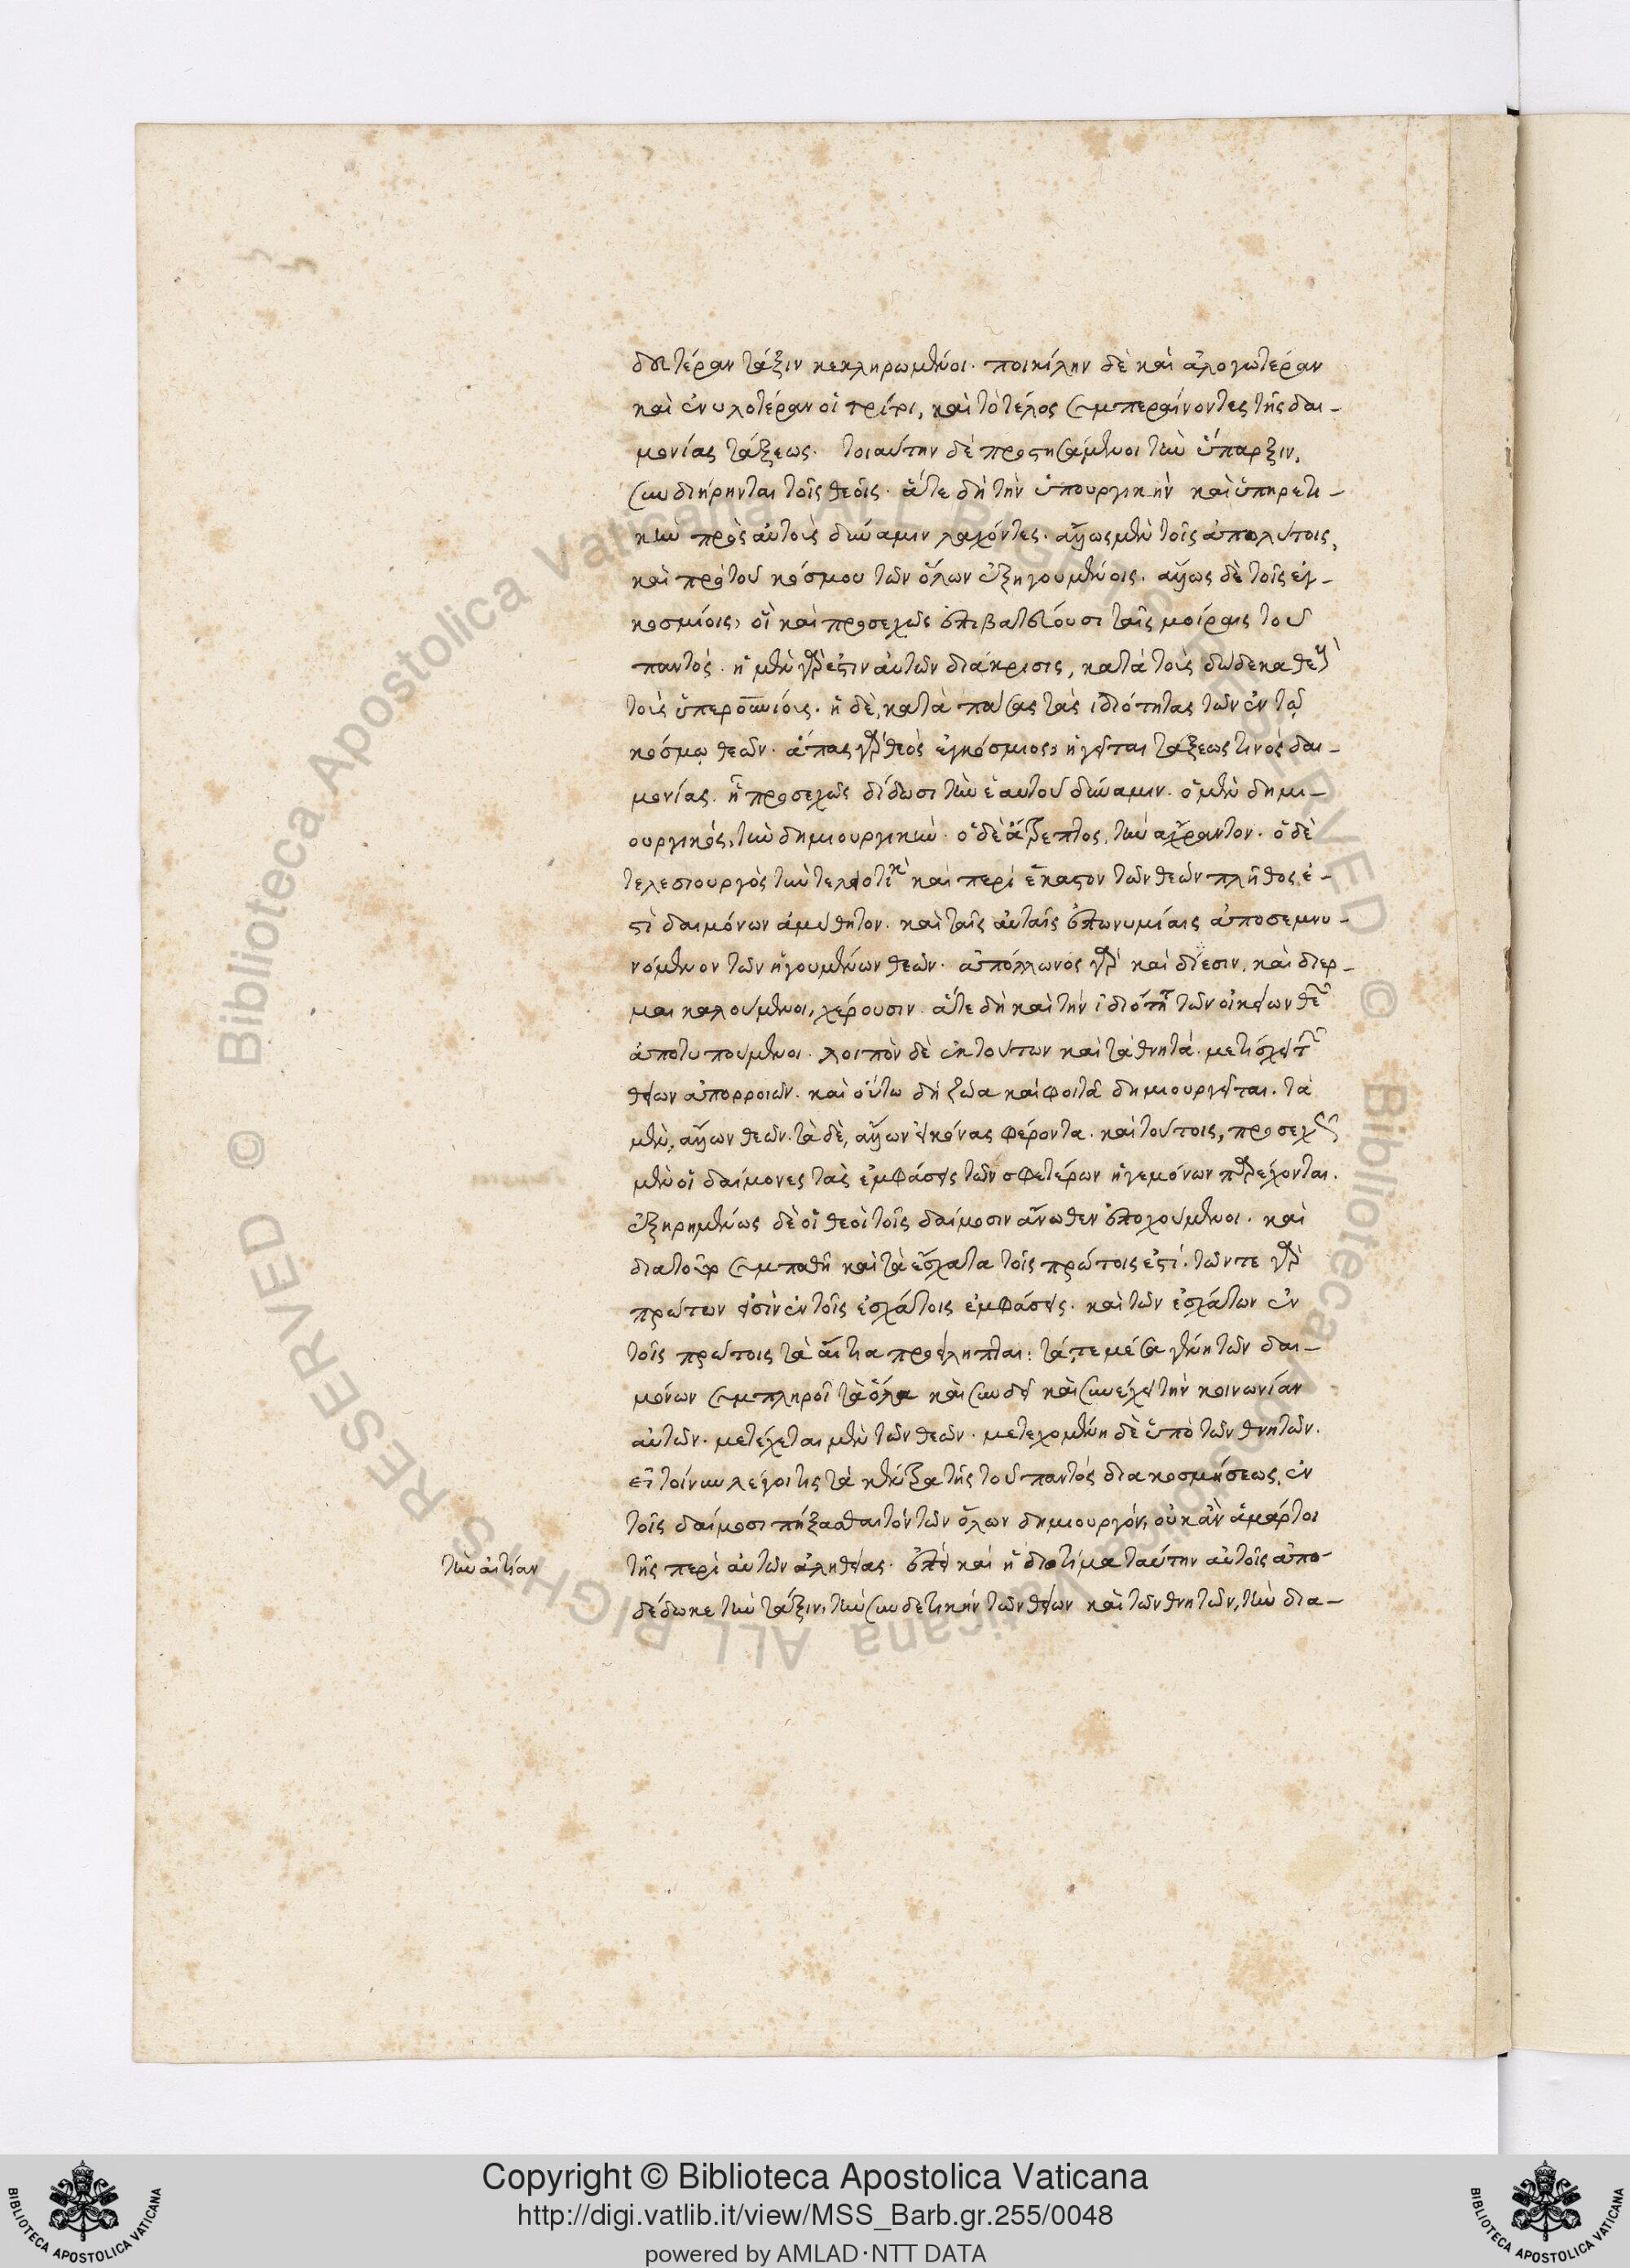 δευτέραν τάξιν κεκληρωμένοι. ποικίλην δὲ καὶ ἀλογωτέραν
καὶ ἐνυλοτέραν οἱ τρίτοι, καὶ τὸ τέλος συμπεραίνοντες τῆς δαι-
μονίας τάξεως. τοιαύτην δὲ προστησάμενοι τὴν ὕπαρξιν,
συνδιήρηνται τοῖς θεοῖς. ἅτε δὴ τὴν ὑπουργικὴν καὶ ὑπηρετι-
κὴν πρὸς αὐτοὺς δύναμιν λαχόντες. ἄλλως μὲν τοῖς ἀπολύτοις,
καὶ πρὸ τοῦ κόσμου τῶν ὅλων ἐξηγουμένοις. ἄλλως δὲ τοῖς ἐγ-
κοσμίοις, οἳ καὶ προσεχῶς ἐπιβατεύουσι ταῖς μοίραις τοῦ
παντός. ἡ μὲν γάρ ἐστιν αὐτῶν διάκρισις, κατὰ τοὺς δώδεκα θεοὺς
τοὺς ὑπερουνίους. ἡ δὲ, κατὰ πάσας τὰς ἰδιότητας τῶν ἐν τῷ
κόσμῳ θεῶν. ἅπας γὰρ θεὸς ἐγκόσμιος, ἡγεῖται τάξεώς τινος δαι-
μονίας. ᾗ προσεχῶς δίδωσι τὴν ἑαυτοῦ δύναμιν. ὁ μὲν δημι-
ουργικός, τὴν δημιουργικήν. ὁ δὲ ἄτρεπτος, τὴν ἄχραντον. ὁ δὲ
τελεσιουργὸς τὴν τελειωτικὴν καὶ περὶ ἕκαστον τῶν θεῶν πλῆθος ἐ-
στὶ δαιμόνων ἀμύθητον. καὶ ταῖς αὐταῖς ἐπωνυμίαις ἀποσεμνυ-
νόμενον τῶν ἡγουμένων θεῶν. ἀπόλλωνος γὰρ καὶ δίεσιν, καὶ διερ-
μαι καλούμενοι, χέρουσιν. ἅτε δὴ καὶ τὴν ἰδιότητα τῶν οἰκείων θεῶν
ἀποτυπούμενοι. λοιπὸν δὲ ἐκ τούτων καὶ τὰ θνητά. μετίσχει τῶν
θείων ἀπορροιῶν. καὶ οὕτω δὴ ζῶα καὶ φοιτὰ δημιουργεῖται. τὰ
μὲν, ἄλλων θεῶν. τὰ δὲ, ἄλλων εἰκόνας φέροντα. καὶ τούτοις, προσεχῶς
μὲν οἱ δαίμονες τὰς ἐμφάσεις τῶν σφετέρων ἡγεμόνων παρέχονται.
ἐξηρημένως δὲ οἱ θεοὶ τοῖς δαίμοσιν ἄνωθεν ἐποχούμενοι. καὶ
διατοῦτο συμπαθῆ καὶ τὰ ἔσχατα τοῖς πρώτοις ἐστί. τῶν τε γὰρ
πρώτων εἰσὶν ἐν τοῖς ἐσχάτοις ἐμφάσεις. καὶ τῶν ἐσχάτων ἐν
τοῖς πρώτοις τὰ αἴτια προείληπται: τά, τε μέσα γένη τῶν δαι-
μόνων συμπληροῖ τὰ ὅλα καὶ συνδεῖ καὶ συνέχει τὴν κοινωνίαν
αὐτῶν. μετέχεται μὲν τῶν θεῶν. μετεχομένη δὲ ὑπὸ τῶν θνητῶν.
εἴ τοίνυν λέγοι τις τὰ κέντρα τῆς τοῦ παντὸς διακοσμήσεως, ἐν
τοῖς δαίμοσι πήξασθαι τὸν τῶν ὅλων δημιουργόν, οὐκ ἂν ἁμάρτοι
τὴν αἰτίαν τῆς περὶ αὐτῶν ἀληθείας. ἐπεὶ καὶ ἡ διοτίμα ταύτην αὐτοῖς ἀπο-
δέδωκε τὴν τάξιν, τὴν συνδετικὴν τῶν θείων καὶ τῶν θνητῶν, τὴν δια-
Copyright © Biblioteca Apostolica Vaticana
http://digi.vatlib.it/view/MSS_Barb.gr.255/0048
powered by AMLAD·NTT DATA